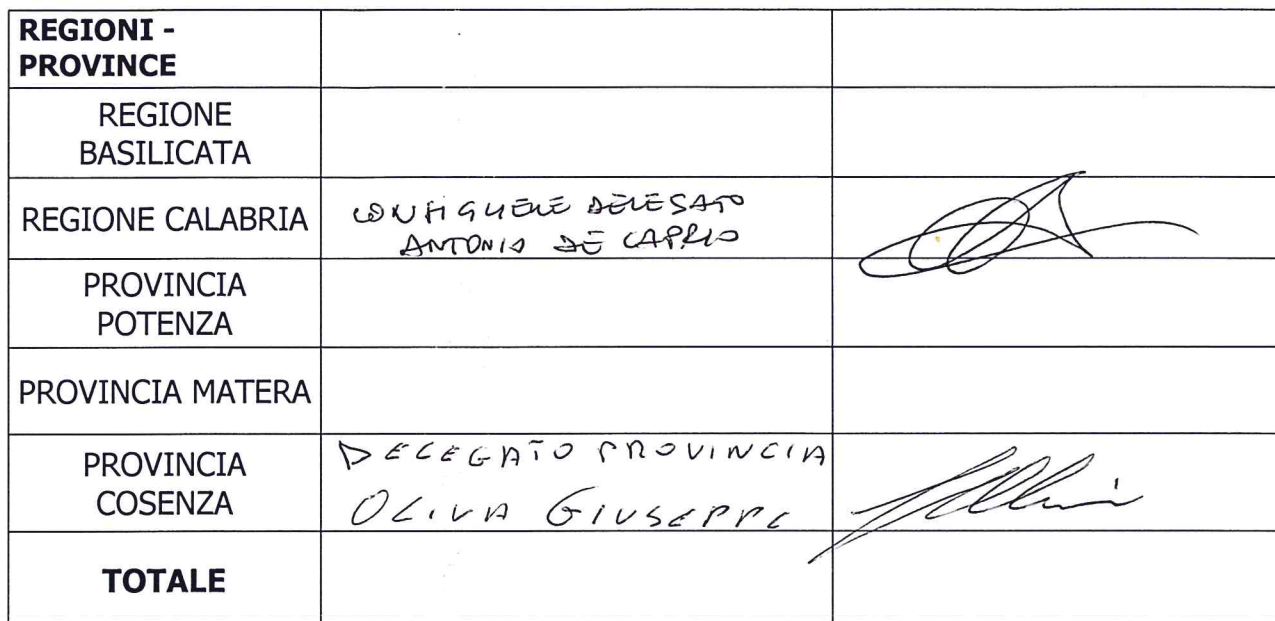 REGIONI -
PROVINCE
REGIONE
BASILICATA
REGIONE CALABRIA
CONSIGLIERE DELEGATO
ANTONIO DE CAPRIO
PROVINCIA
POTENZA
PROVINCIA MATERA
PROVINCIA
COSENZA
DELEGATO PROVINCIA
OLIVA GIUSEPPE
TOTALE